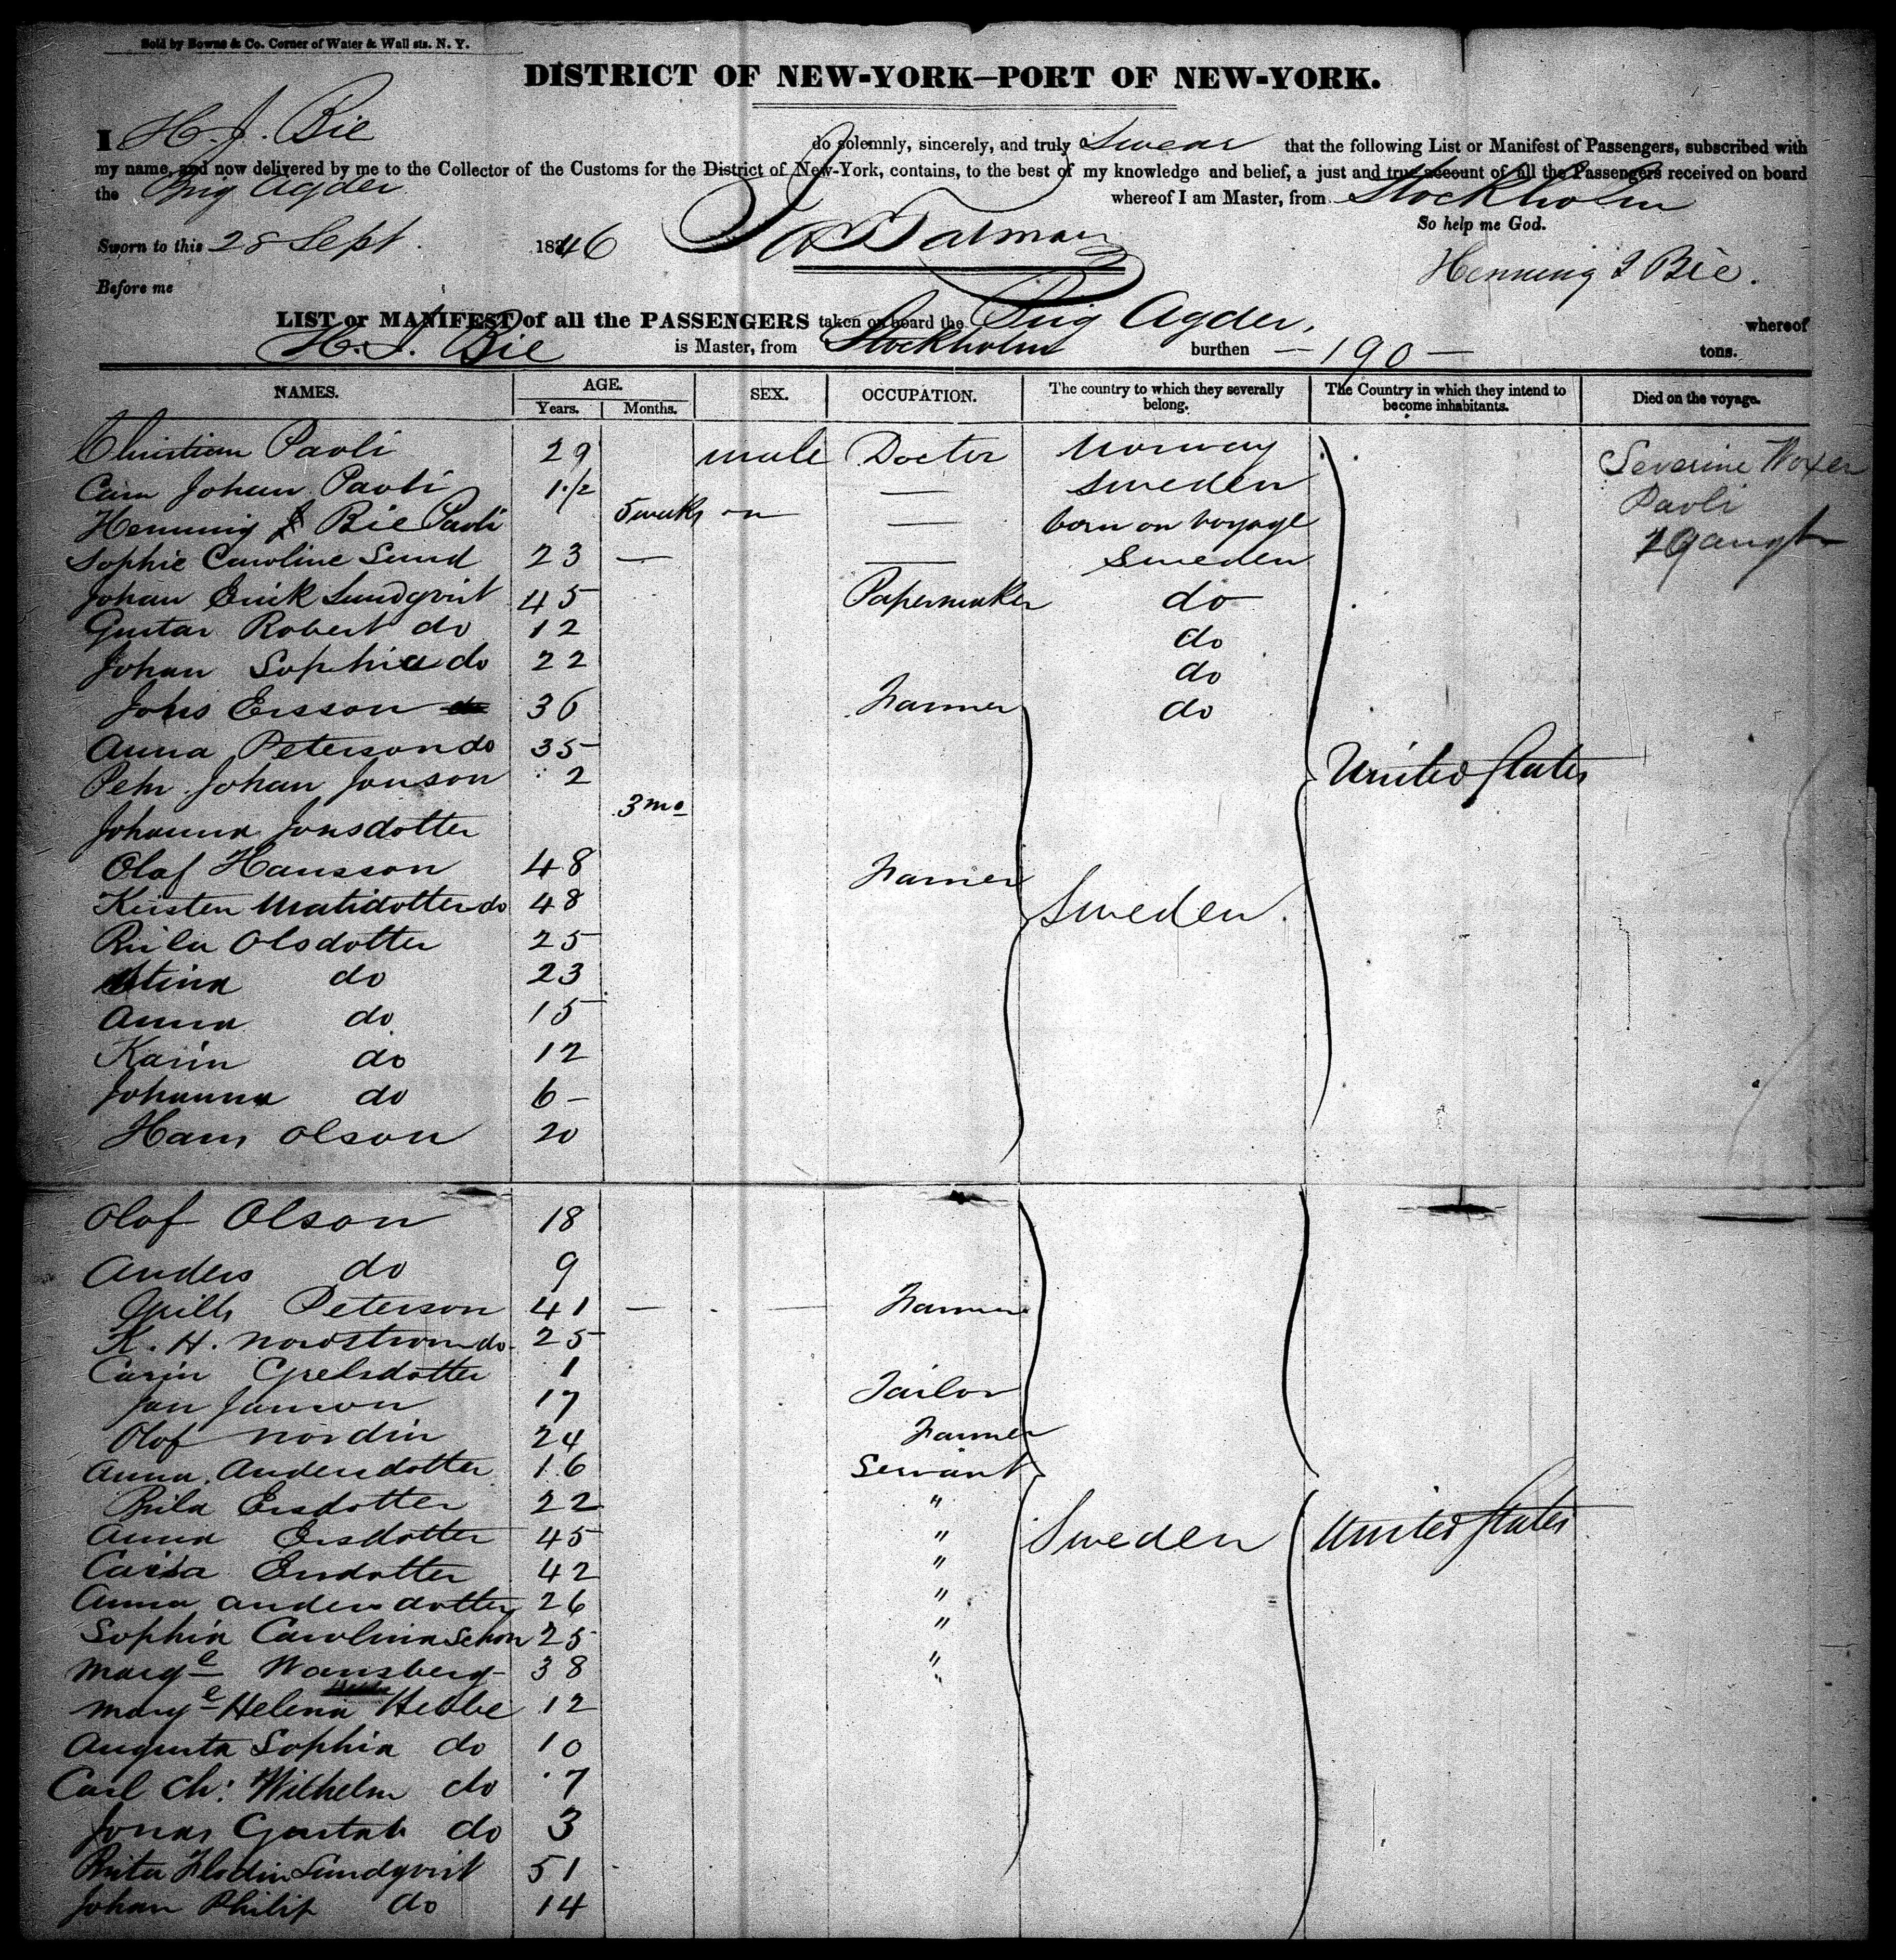 Sold by Bowne & Co. Corner of Water & Wall sts. N. Y.
DISTRICT OF NEW-YORK—PORT OF NEW-YORK.
I H. J. Bie do solemnly, sincerely, and truly Swear that the following List or Manifest of Passengers, subscribed with
my name, and now delivered by me to the Collector of the Customs for the District of New-York, contains, to the best of my knowledge and belief, a just and true account of all the Passengers received on board
the Brig Agder whereof I am Master, from Stockholm
So help me God.
Sworn to this 28 Sept. 1846
Henning J Bie.
Before me
LIST or MANIFEST of all the PASSENGERS taken on board the Brig Agder, whereof
H. J. Bie is Master, from Stockholm burthen — 190 — tons.
NAMES. AGE. Years. Months. SEX. OCCUPATION. The country to which they severally belong. The Country in which they intend to become inhabitants. Died on the voyage.
Christian Pavli 29 male Doctor Norway Severine
Carn Johan Pavli 1 1/2 — Sweden Pavli
Henning J Bie Pavli 5 weeks — born on voyage 29 augt
Sophie Caroline Lund 23 — — Sweden
Johan Erick Lundqvist 45 Papermaker do
Gustav Robert do 12 do
Johan Sophia do 22 do
Johs Ersson 36 Farmer do
Anna Peterson do 35
Pehr Johan Jonson 2 United States
Johanna Jonsdotter 3 mo
Olaf Hansson 48 Farmer
Kersten Matsdotter do 48 Sweden
Brila Olsdotter 25
Stina do 23
Anna do 15
Karin do 12
Johanna do 6 –
Hans Olson 20
Olof Olson 18
Anders do 9
Peterson 41 — — Farmer
K. H. Nordstrom do 25
Carin Grelsdotter 1
Jan Janson 17 Tailor
Olof Nordin 24 Farmer
Anna Andersdotter 16 Servant
Brila Ersdotter 22 "
Anna Ersdotter 45 " Sweden United States
Caisa Ersdotter 42 "
Anna Andersdotter 26 "
Sophia Carolina Schon 25 "
Marge Wansberg 38 "
Marge Helena Hebbe 12
Augusta Sophia do 10
Carl Ch: Wilhelm do 7
Jonas Gustab do 3
Brita Flodin Lundqvist 51
Johan Philip do 14